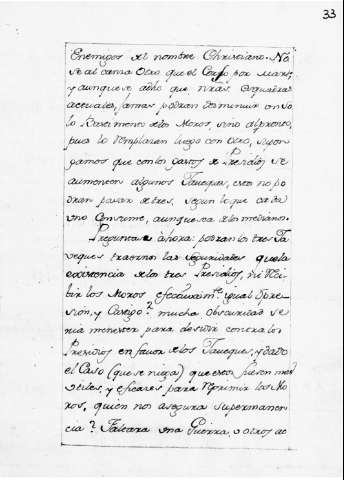 33
Enemigos del nombre Christiano. No
se al canza otro que el Corso por Mar;
y aunque se dìho que ntras. esquadras
actuales, jamas podran disminuir un so
lo Bastimento de los Moros, sino al pronto,
pues lo remplazan luego con otro, supon
gamos que con los gastos de Presidios se
aumenten algunos Javeques, estos no po
dran pasar de tres, segun lo que cada
uno consume, aunque sea de los medianos.
Pregunta àhora: podran los tres Ja
veques traernos las seguridades que la
existencia de los tres Presidios, ni Reci
bir los Moros efectivamte. igual opre
sion, y Castigo? mucha obscuridad se
ria menester para decidir contra los
Presidios en favor de los Javeques, y dado
el Caso (que se niega) que estos fuesen mas
utiles, y eficaces para reprimir los Mo
ros, quien nos asegura su permanen
cia? Faltara una Guerra, u otros ac